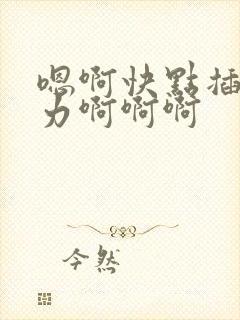 嗯啊快點插
力啊啊啊
今然